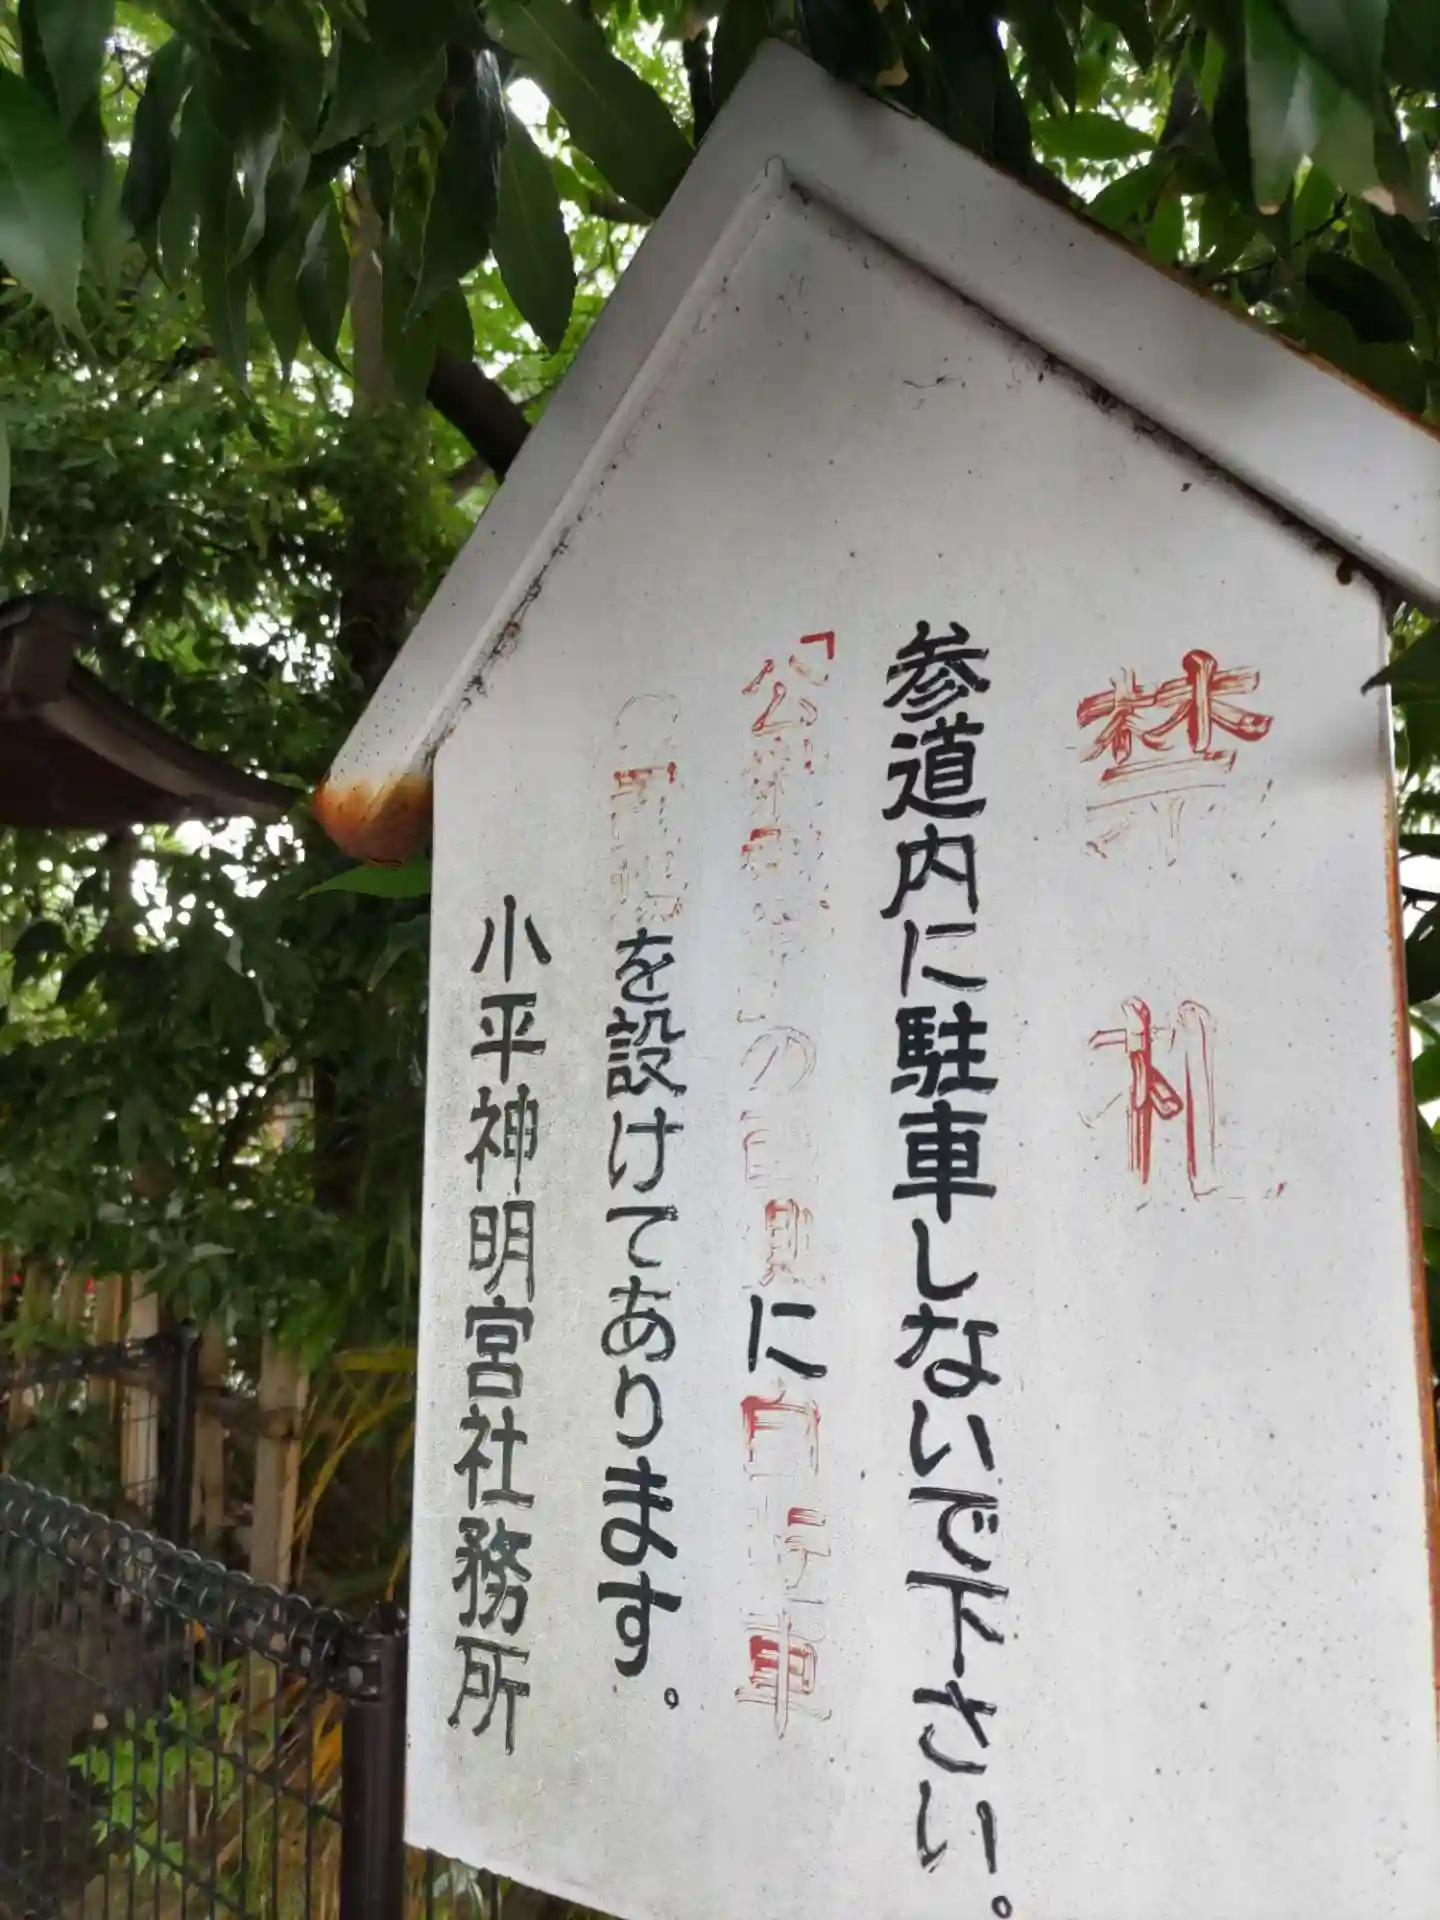 禁札
参道内に駐車しないで下さい。
「公 の に自 車
を設けてあります。
小平神明宮社務所